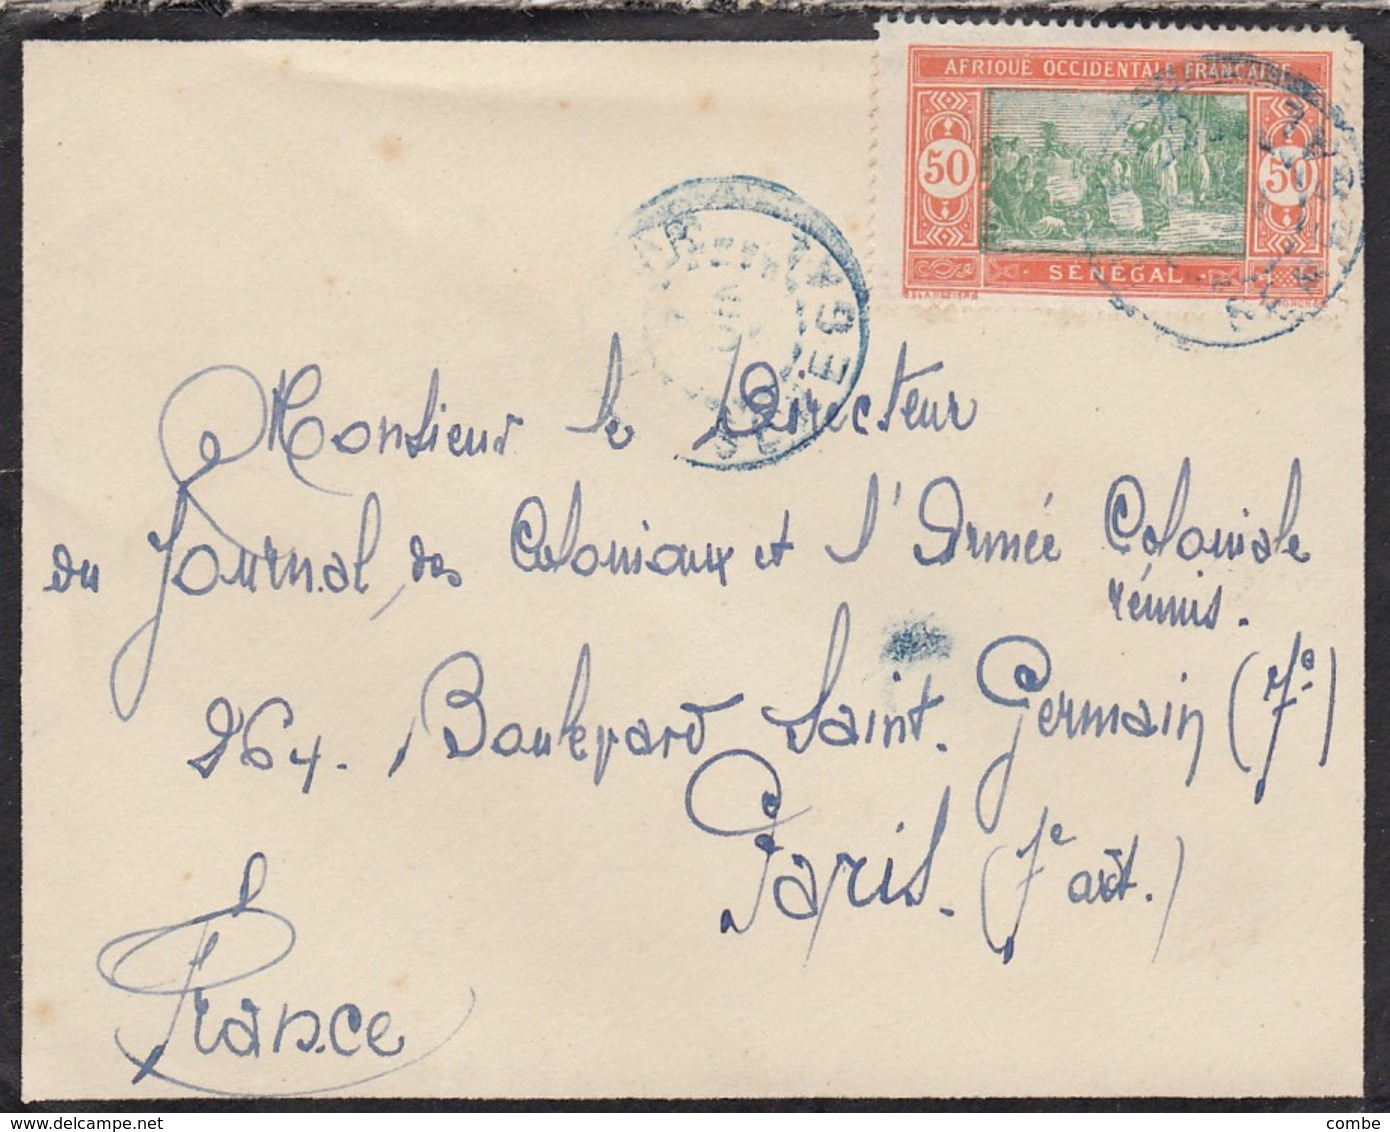 AFRIQUE OCCIDENTALE FRANÇAISE
50 50
SÉNÉGAL
SENEGAL
Monsieur le Directeur
du Journal des Coloniaux et l'Armée Coloniale
réunis.
264. Boulevard Saint. Germain (7e)
Paris. (7e arrt.)
France
delcampe.net
combe